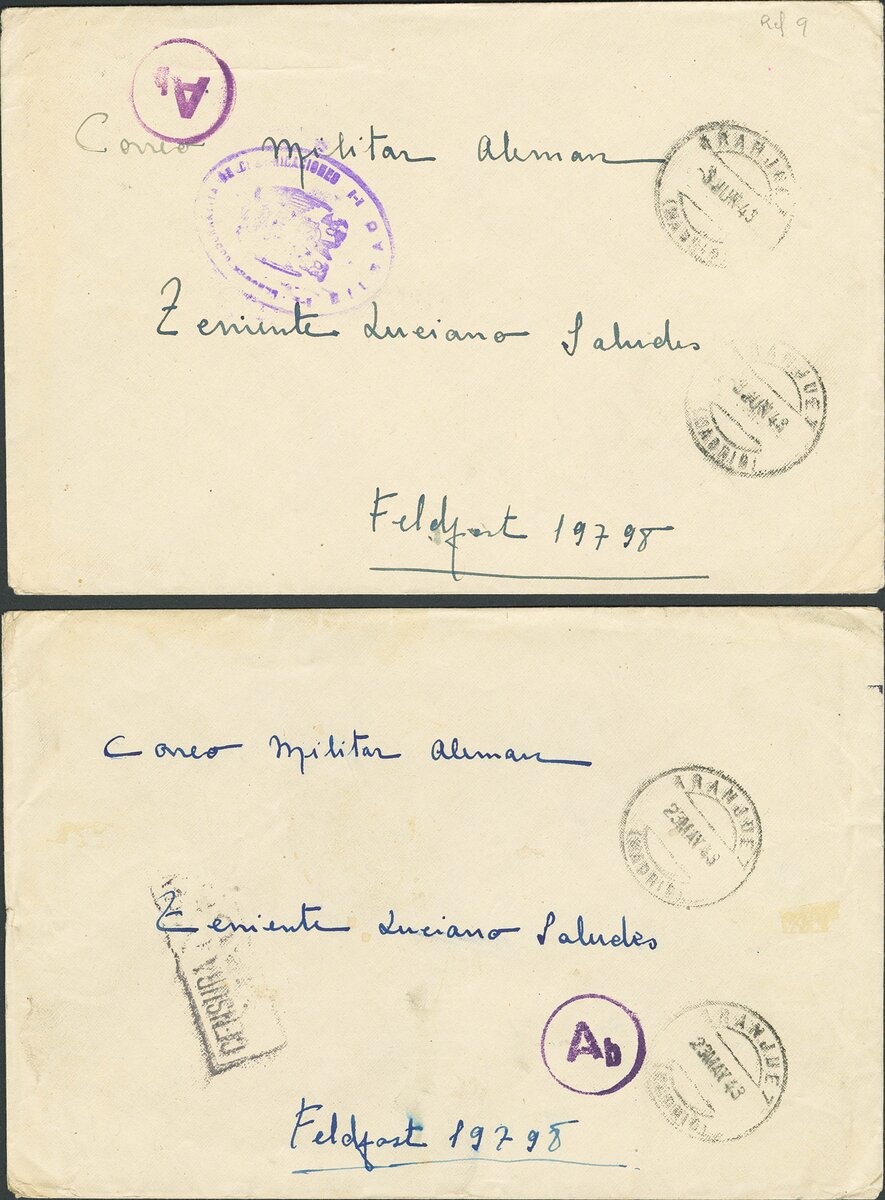 Ref 9
Ab
Correo Militar Aleman
ARANJUEZ
-3 JUN 43
(MADRID)
DE COMUNICACIONES
Teniente Luciano Saludes
ARANJUEZ
-3 JUN 43
(MADRID)
Feldpost 19798
Correo Militar Aleman
ARANJUEZ
23 MAY 43
(MADRID)
Teniente Luciano Saludes
CENSURA
Ab
ARANJUEZ
23 MAY 43
(MADRID)
Feldpost 19798